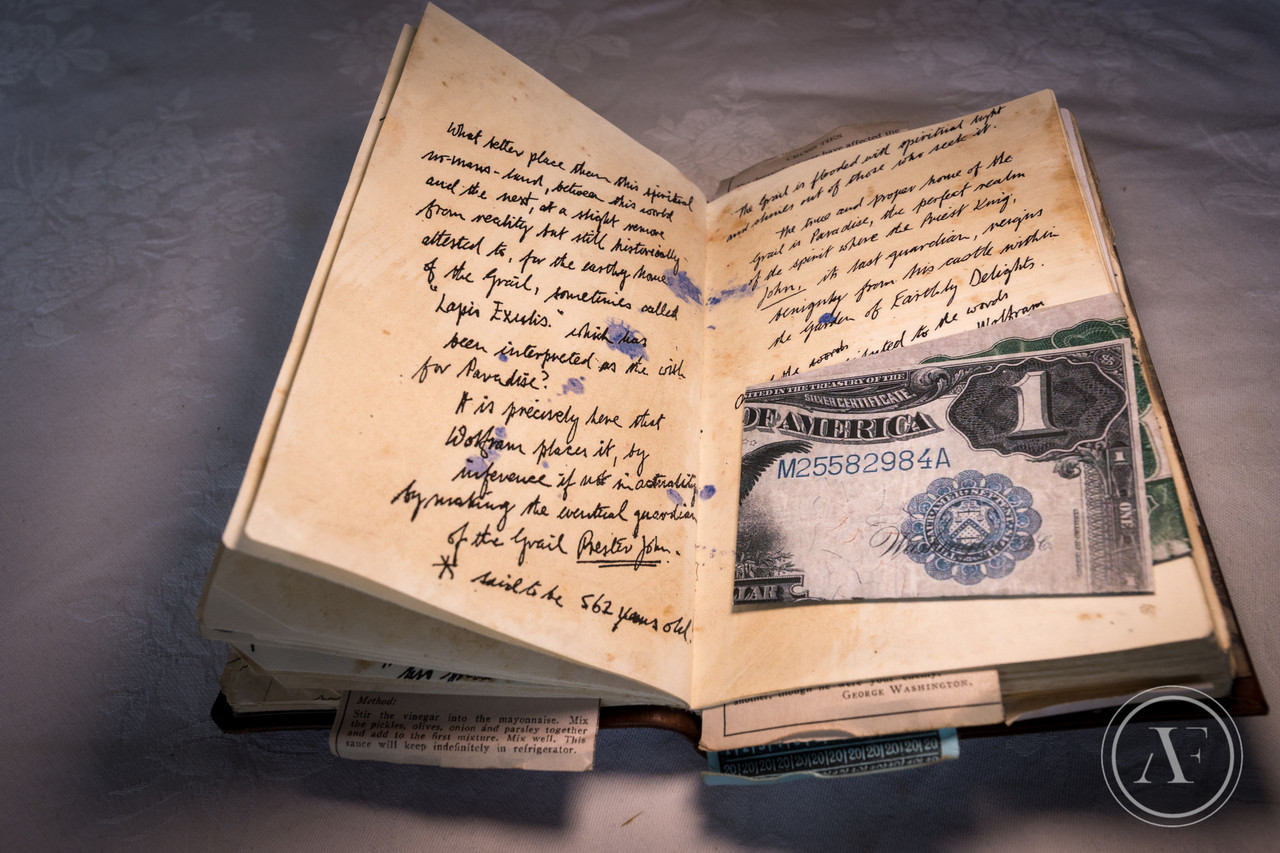 What better place than this spiritual
no-mans-land, between this world
and the next, at a slight remove
from reality but still historically
attested to, for the earthly home
of the Grail, sometimes called
"Lapis Exulis." which has
been interpreted as the
for Paradise?
It is precisely here that
Wolfram places it, by
inference if not in actuality
by making the eventual guardian
of the Grail Prester John.
* said to be 562 years old.
have affected the
The Grail is flooded with spiritual light
and shines out of those who seek it.
The true and proper home of the
Grail is Paradise, the perfect realm
of de spirit where the Priest King,
John, its last guardian, reigns
benignly from his castle within
the Garden of Earthly Delights.
to the words
the words Wolfram
ITED IN THE TREASURY OF THE
SILVER CERTIFICATE
OF AMERICA
1
M25582984A
ONE
LAR
Method:
Stir the vinegar into the mayonnaise. Mix
the pickles, olives, onion and parsley together
and add to the first mixture. Mix well. This
sauce will keep indefinitely in refrigerator.
GEORGE WASHINGTON.
20 20 20 20 20 20 20 20 20
AF